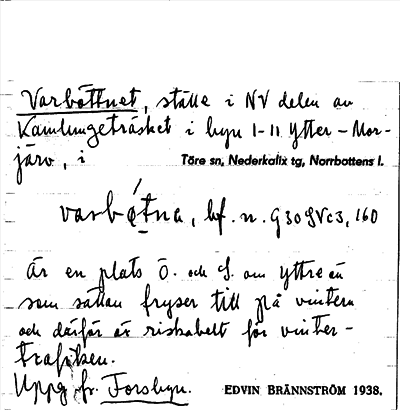 Varbåttnet, ställe i NV delen av
Kamlungeträsket i byn 1-11 Ytter-Mor-
järv, i Töre sn, Nederkalix tg, Norrbottens l.
varbǫ́tna, bf. n. G30SVc3, 160
Är en plats Ö. och S. om yttre än
som sällan fryser till på vintern
och därför är riskabelt för vinter-
trafiken.
Uppg. fr. Forsbyn. EDVIN BRÄNNSTRÖM 1938.